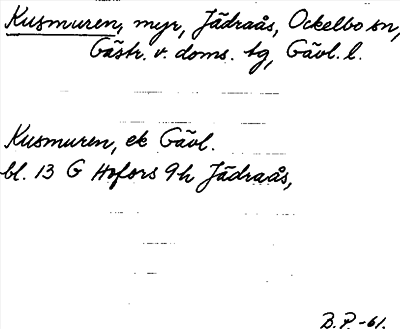 Kusmuren, myr, Jädraås, Ockelbo sn,
Gästr. v. doms. tg, Gävl. l.
Kusmuren, ek Gävl.
bl. 13 G Hofors 9h Jädraås,
B.P. -61.